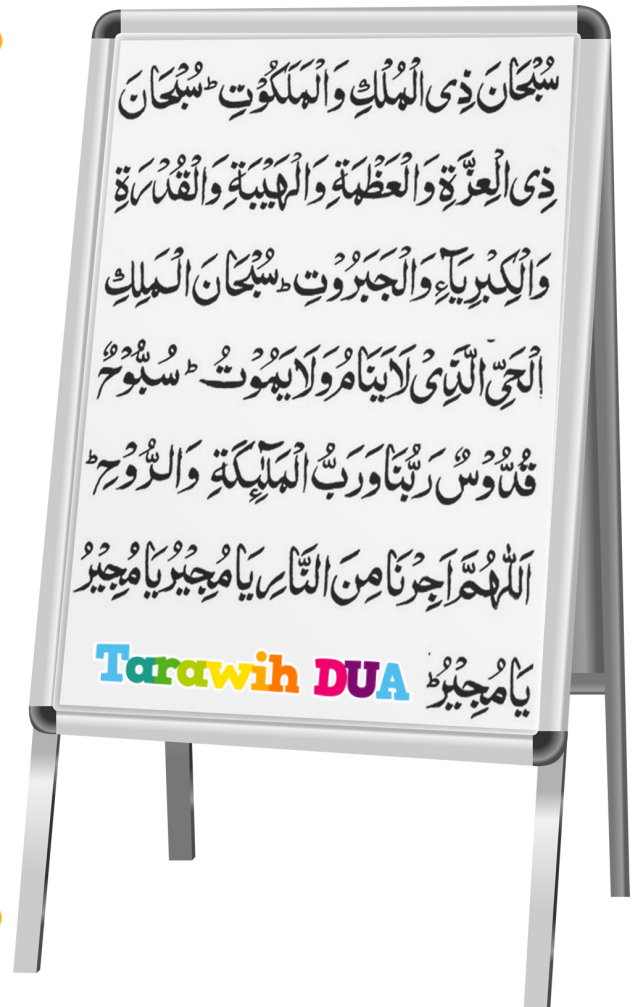 سُبْحَانَ ذِی الْمُلْكِ وَالْمَلَكُوْتِ ؕ سُبْحَانَ
ذِی الْعِزَّةِ وَالْعَظْمَةِ وَالْهَيْبَةِ وَالْقُدْرَةِ
وَالْكِبْرِيَآءِ وَالْجَبَرُوْتِ ؕ سُبْحَانَ الْمَلِكِ
الْحَیِّ الَّذِیْ لَا يَنَامُ وَلَا يَمُوْتُ ؕ سُبُّوْحٌ
قُدُّوْسٌ رَبُّنَا وَرَبُّ الْمَلٰٓئِكَةِ وَالرُّوْحِ ؕ
اَللّٰهُمَّ اَجِرْنَا مِنَ النَّارِ يَا مُجِيْرُ يَا مُجِيْرُ
يَا مُجِيْرُ ؕ Tarawih DUA